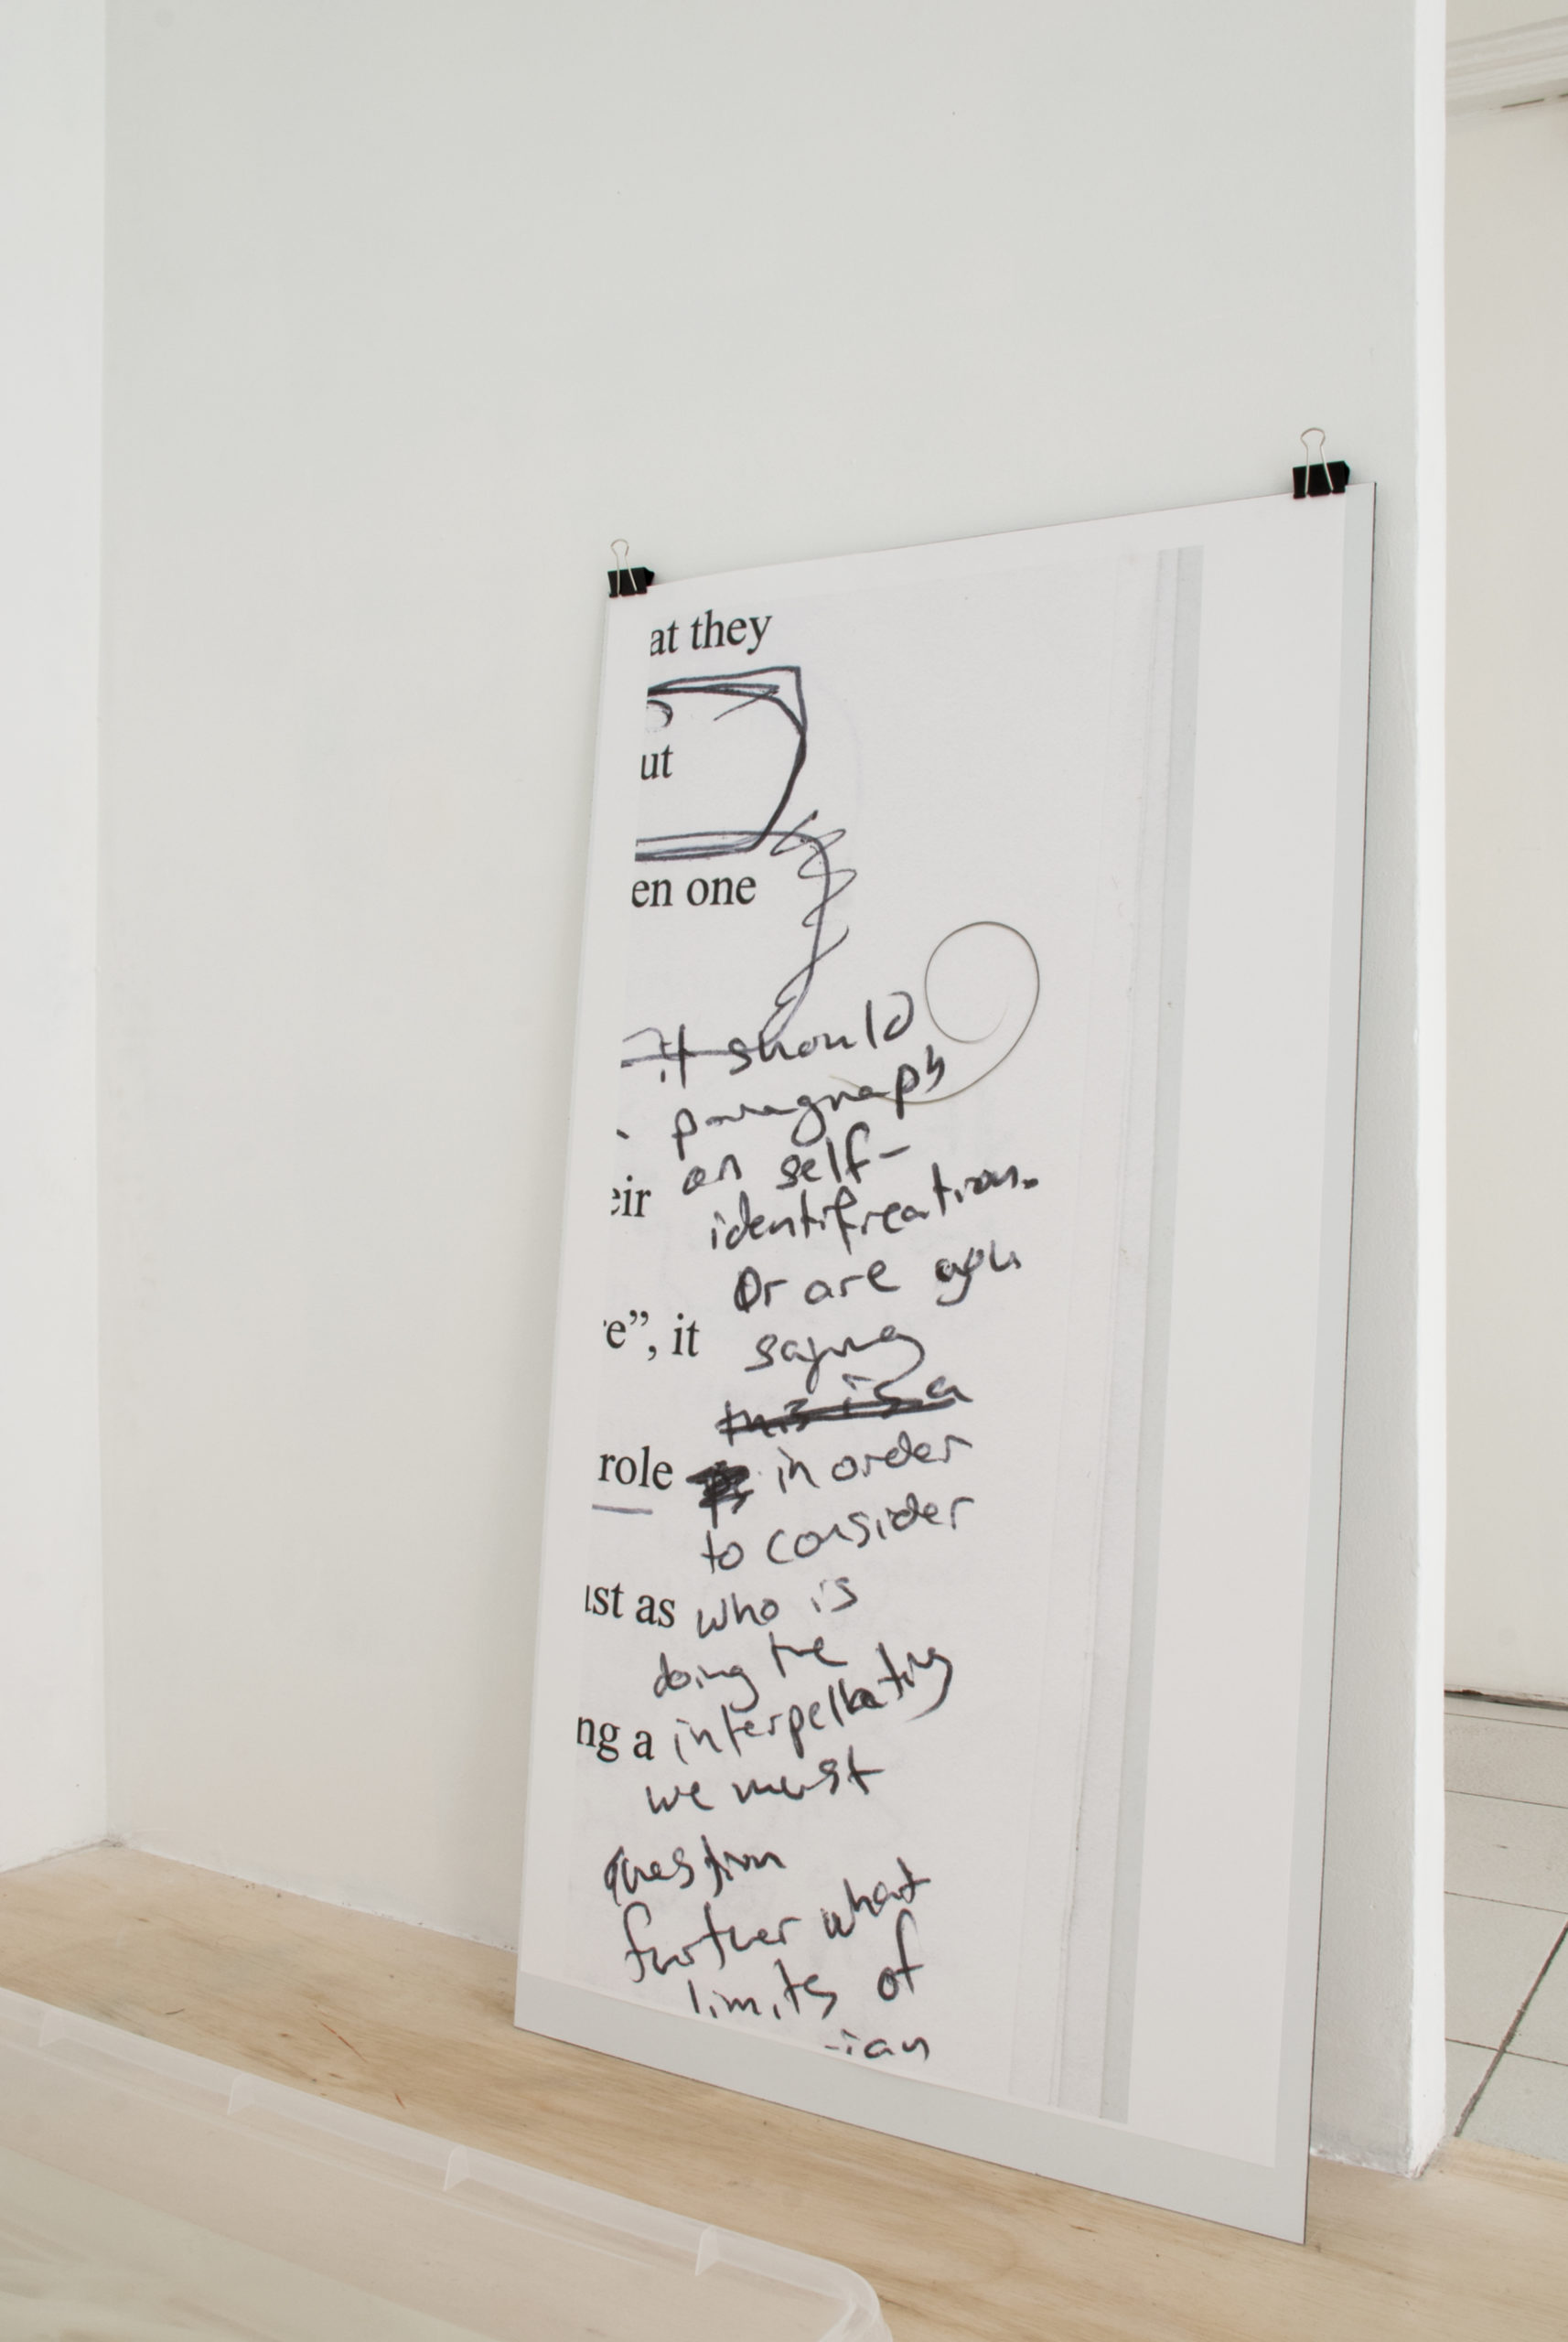 at they
ut
en one
it should
paragraph
eir on self-
identification.
Or are you
e”, it saying
this is a
role in order
to consider
ust as who is
doing the
ng a interpellating
we must
question
further what
limits of
-ian